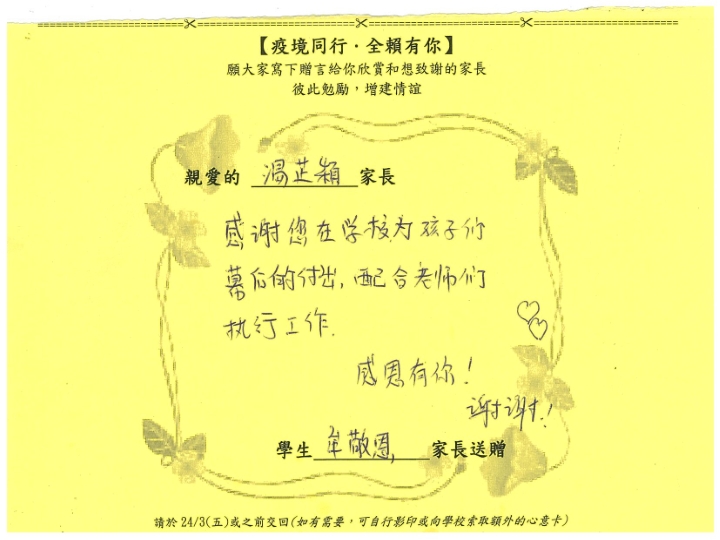 【疫境同行·全賴有你】
願大家寫下贈言給你欣賞和想致謝的家長
彼此勉勵，增建情誼
親愛的 馮芷穎 家長
感谢您在学校为孩子们
幕后的付出，配合老师们
执行工作.
感恩有你！
谢谢！
學生 牟敬恩 家長送贈
請於 24/3(五)或之前交回(如有需要，可自行影印或向學校索取額外的心意卡)